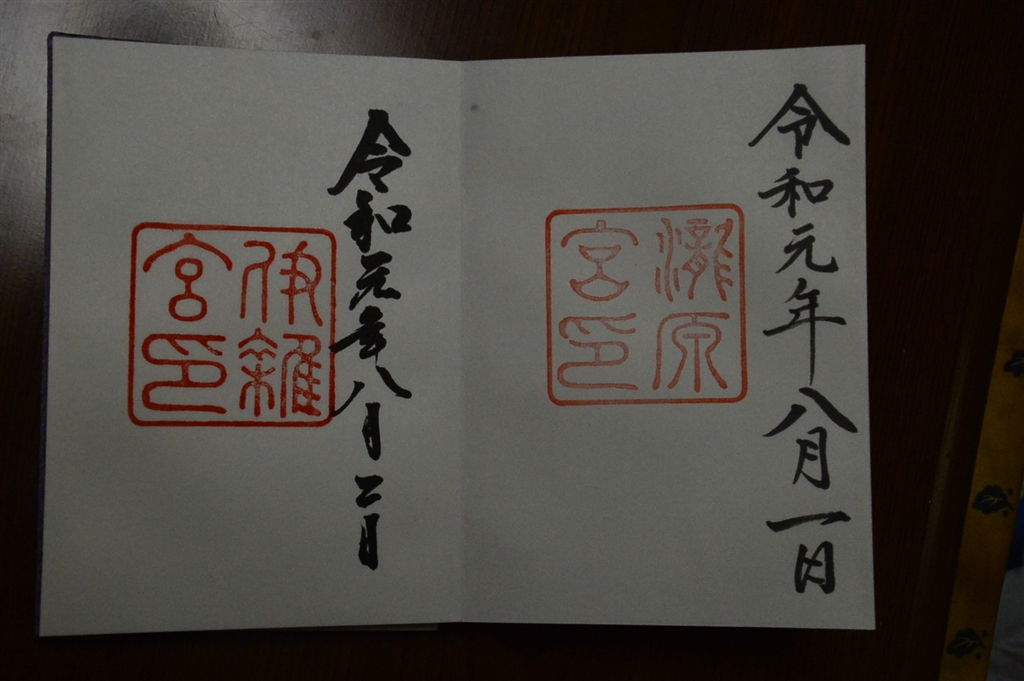 令和元年八月一日
瀧原
宮印
令和元年八月二日
伊雜
宮印